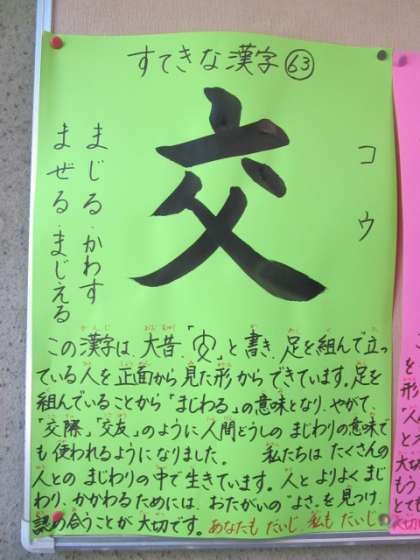 すてきな漢字63
交
コウ
まじる・かわす
まぜる・まじえる
この漢字は大昔「」と書き、足を組んで立っ
ている人を正面から見た形からできています。足を
組んでいることから「まじわる」の意味となり、やがて、
「交際」「交友」のように人間どうしのまじわりの意味で
も使われるようになりました。 私たちはたくさんの
人とのまじわりの中で生きています。人とよりよくまじ
わり、かかわるためには、おたがいの"よさ"を見つけ、
認め合うことが大切です。あなたもだいじ 私もだいじ